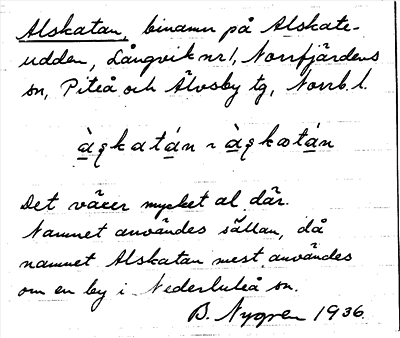 Alskatan, binamn på Alskate-
udden, Långvik nr 1, Norrfjärdens
sn, Piteå och Älvsby tg, Norrb. l.
àɋkatán ~ àɋkɷtán
Det växer mycket al där.
Namnet användes sällan, då
namnet Alskatan mest användes
om en by i Nederluleå sn.
B. Nygren 1936